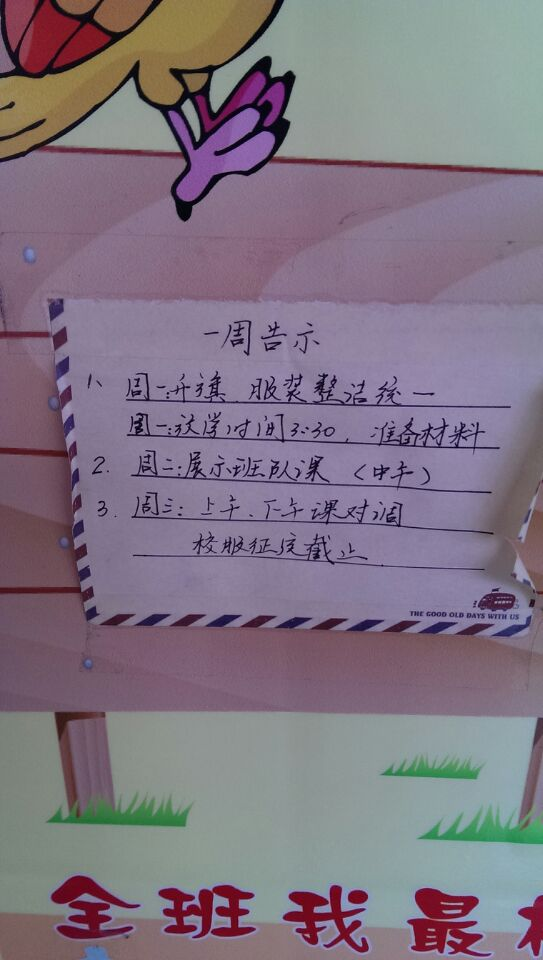 一周告示
1、周一:升旗 服装整洁统一
周一:放学时间3:30,准备材料
2. 周二:展示班队课(中午)
3. 周三:上午、下午课对调
校服征订截止
THE GOOD OLD DAYS WITH US
全班我最